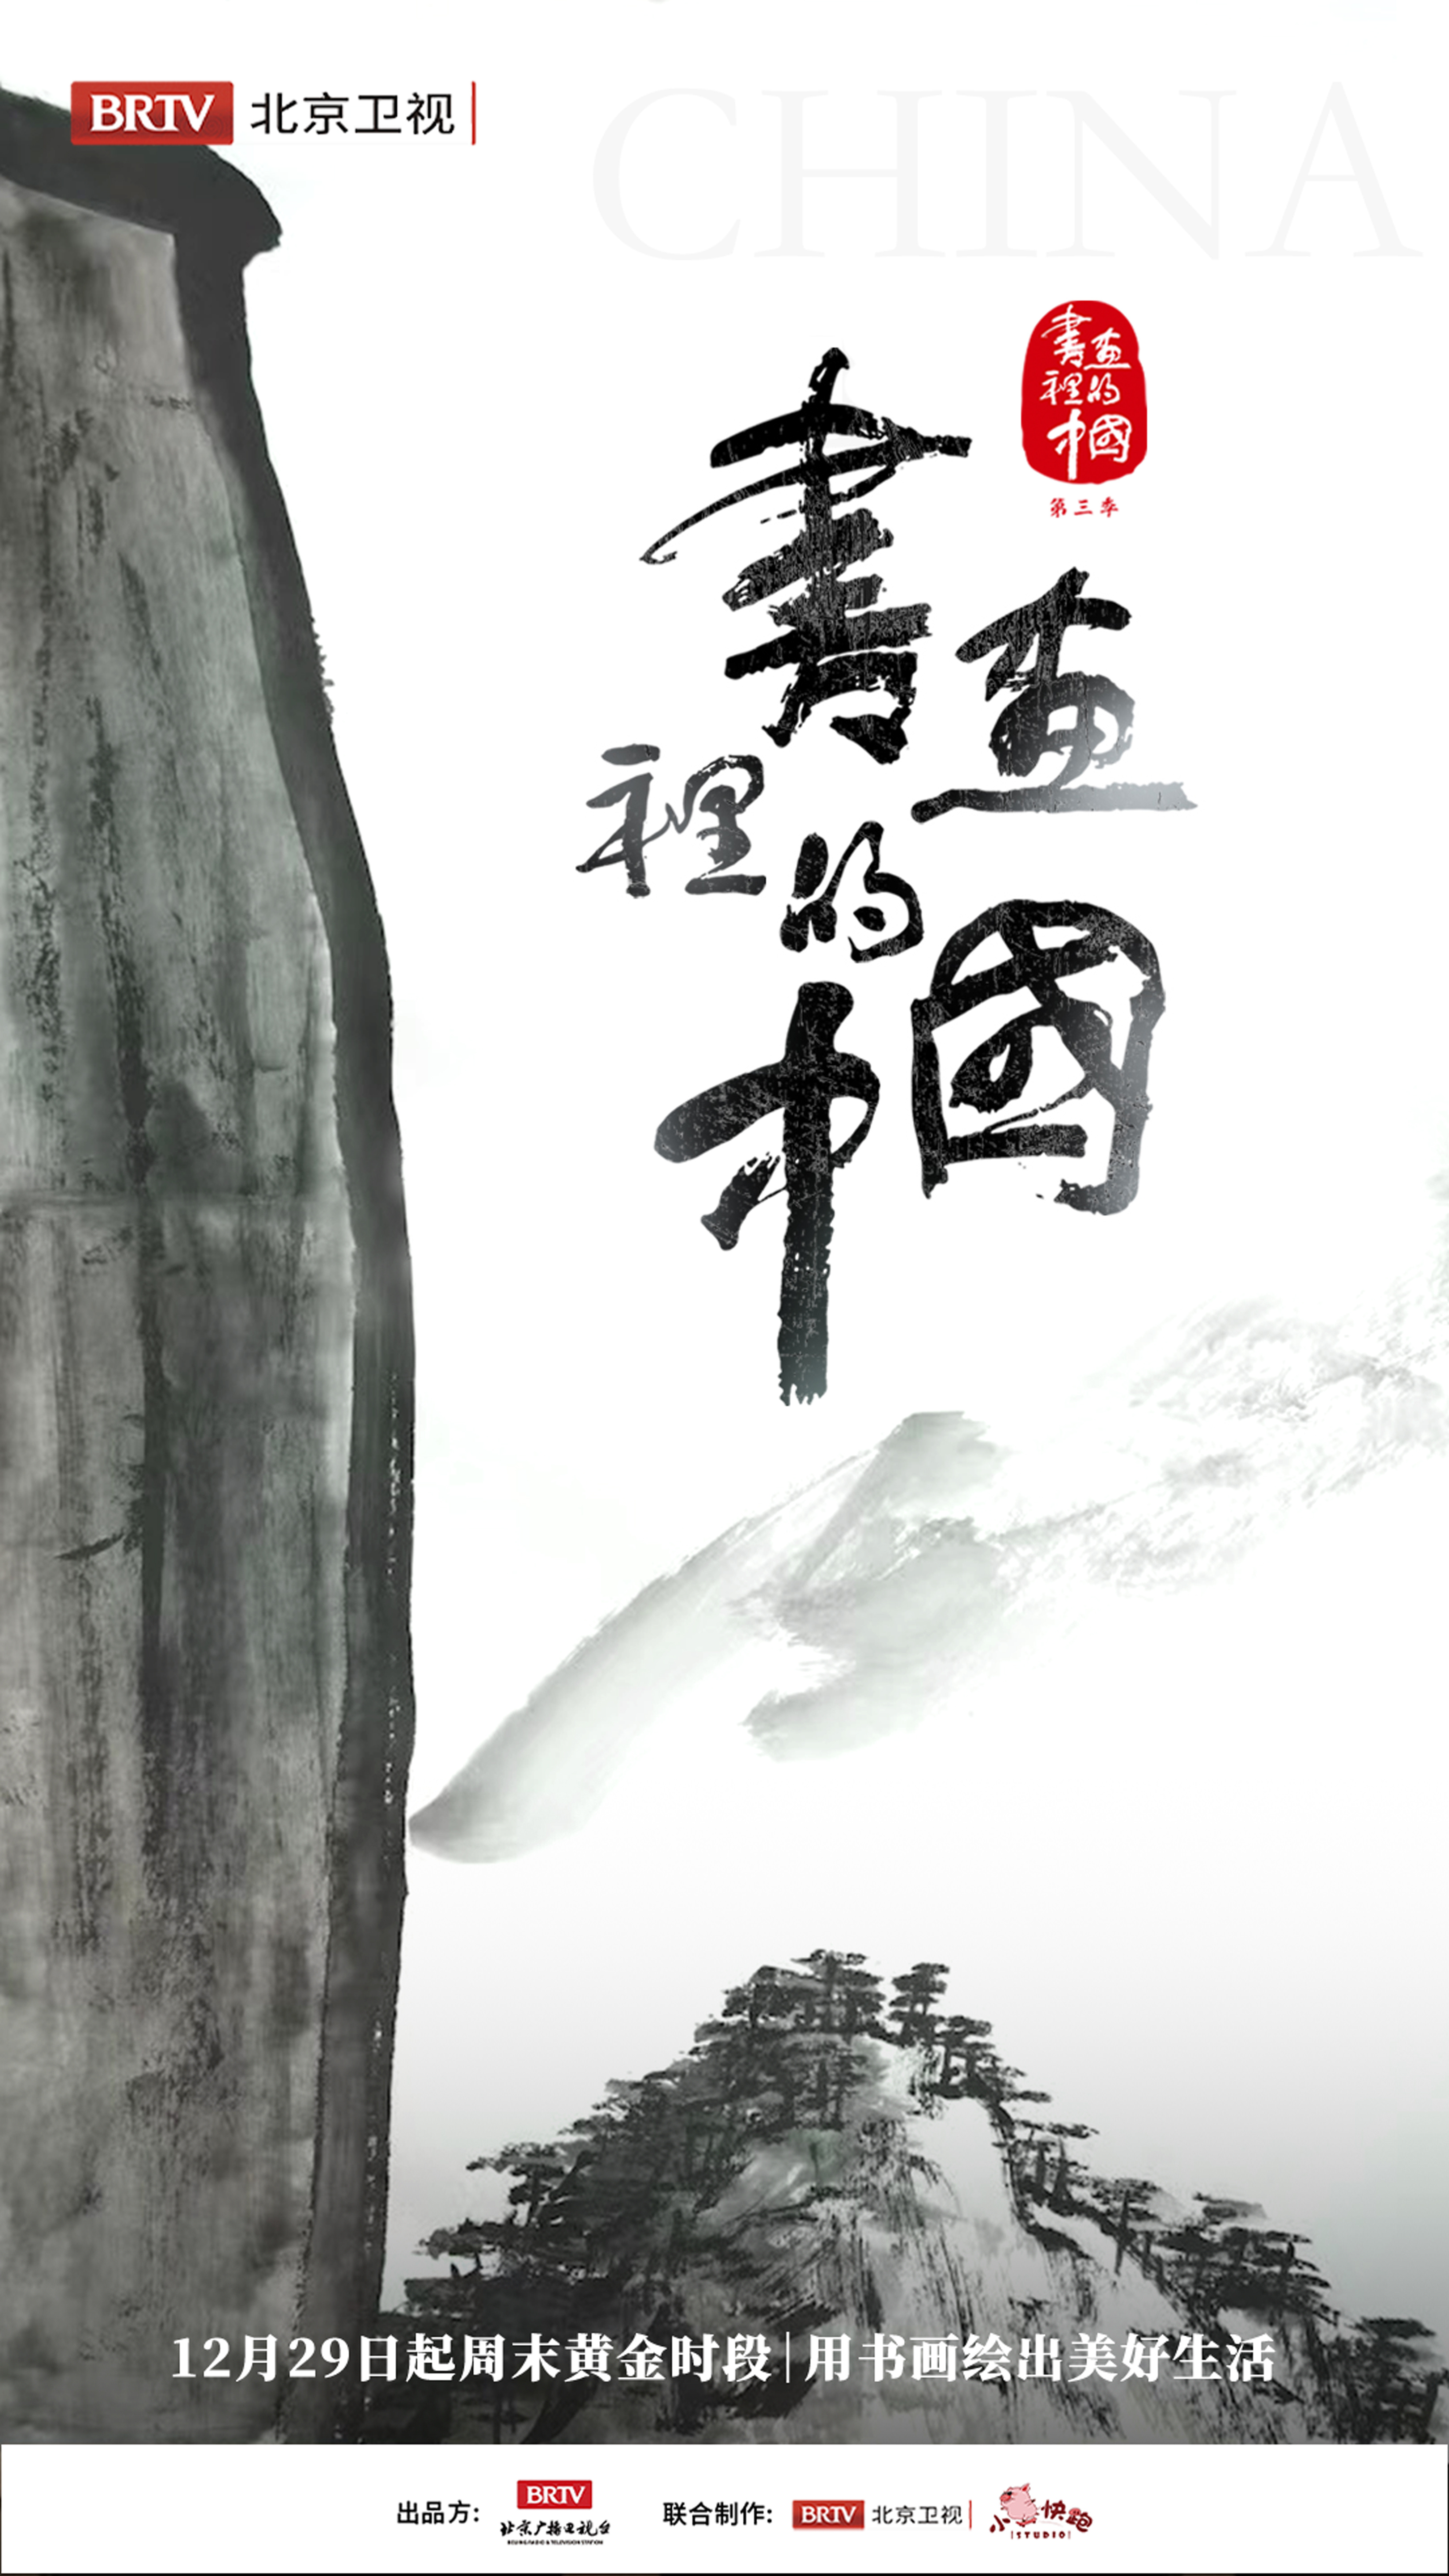 BRTV 北京卫视
CHINA
書畫
裡的
中國
第三季
書畫
裡的
中國
12月29日起周末黄金时段|用书画绘出美好生活
出品方: BRTV 北京广播电视台 BEIJING RADIO & TELEVISION STATION 联合制作: BRTV 北京卫视 小猪快跑 STUDIO